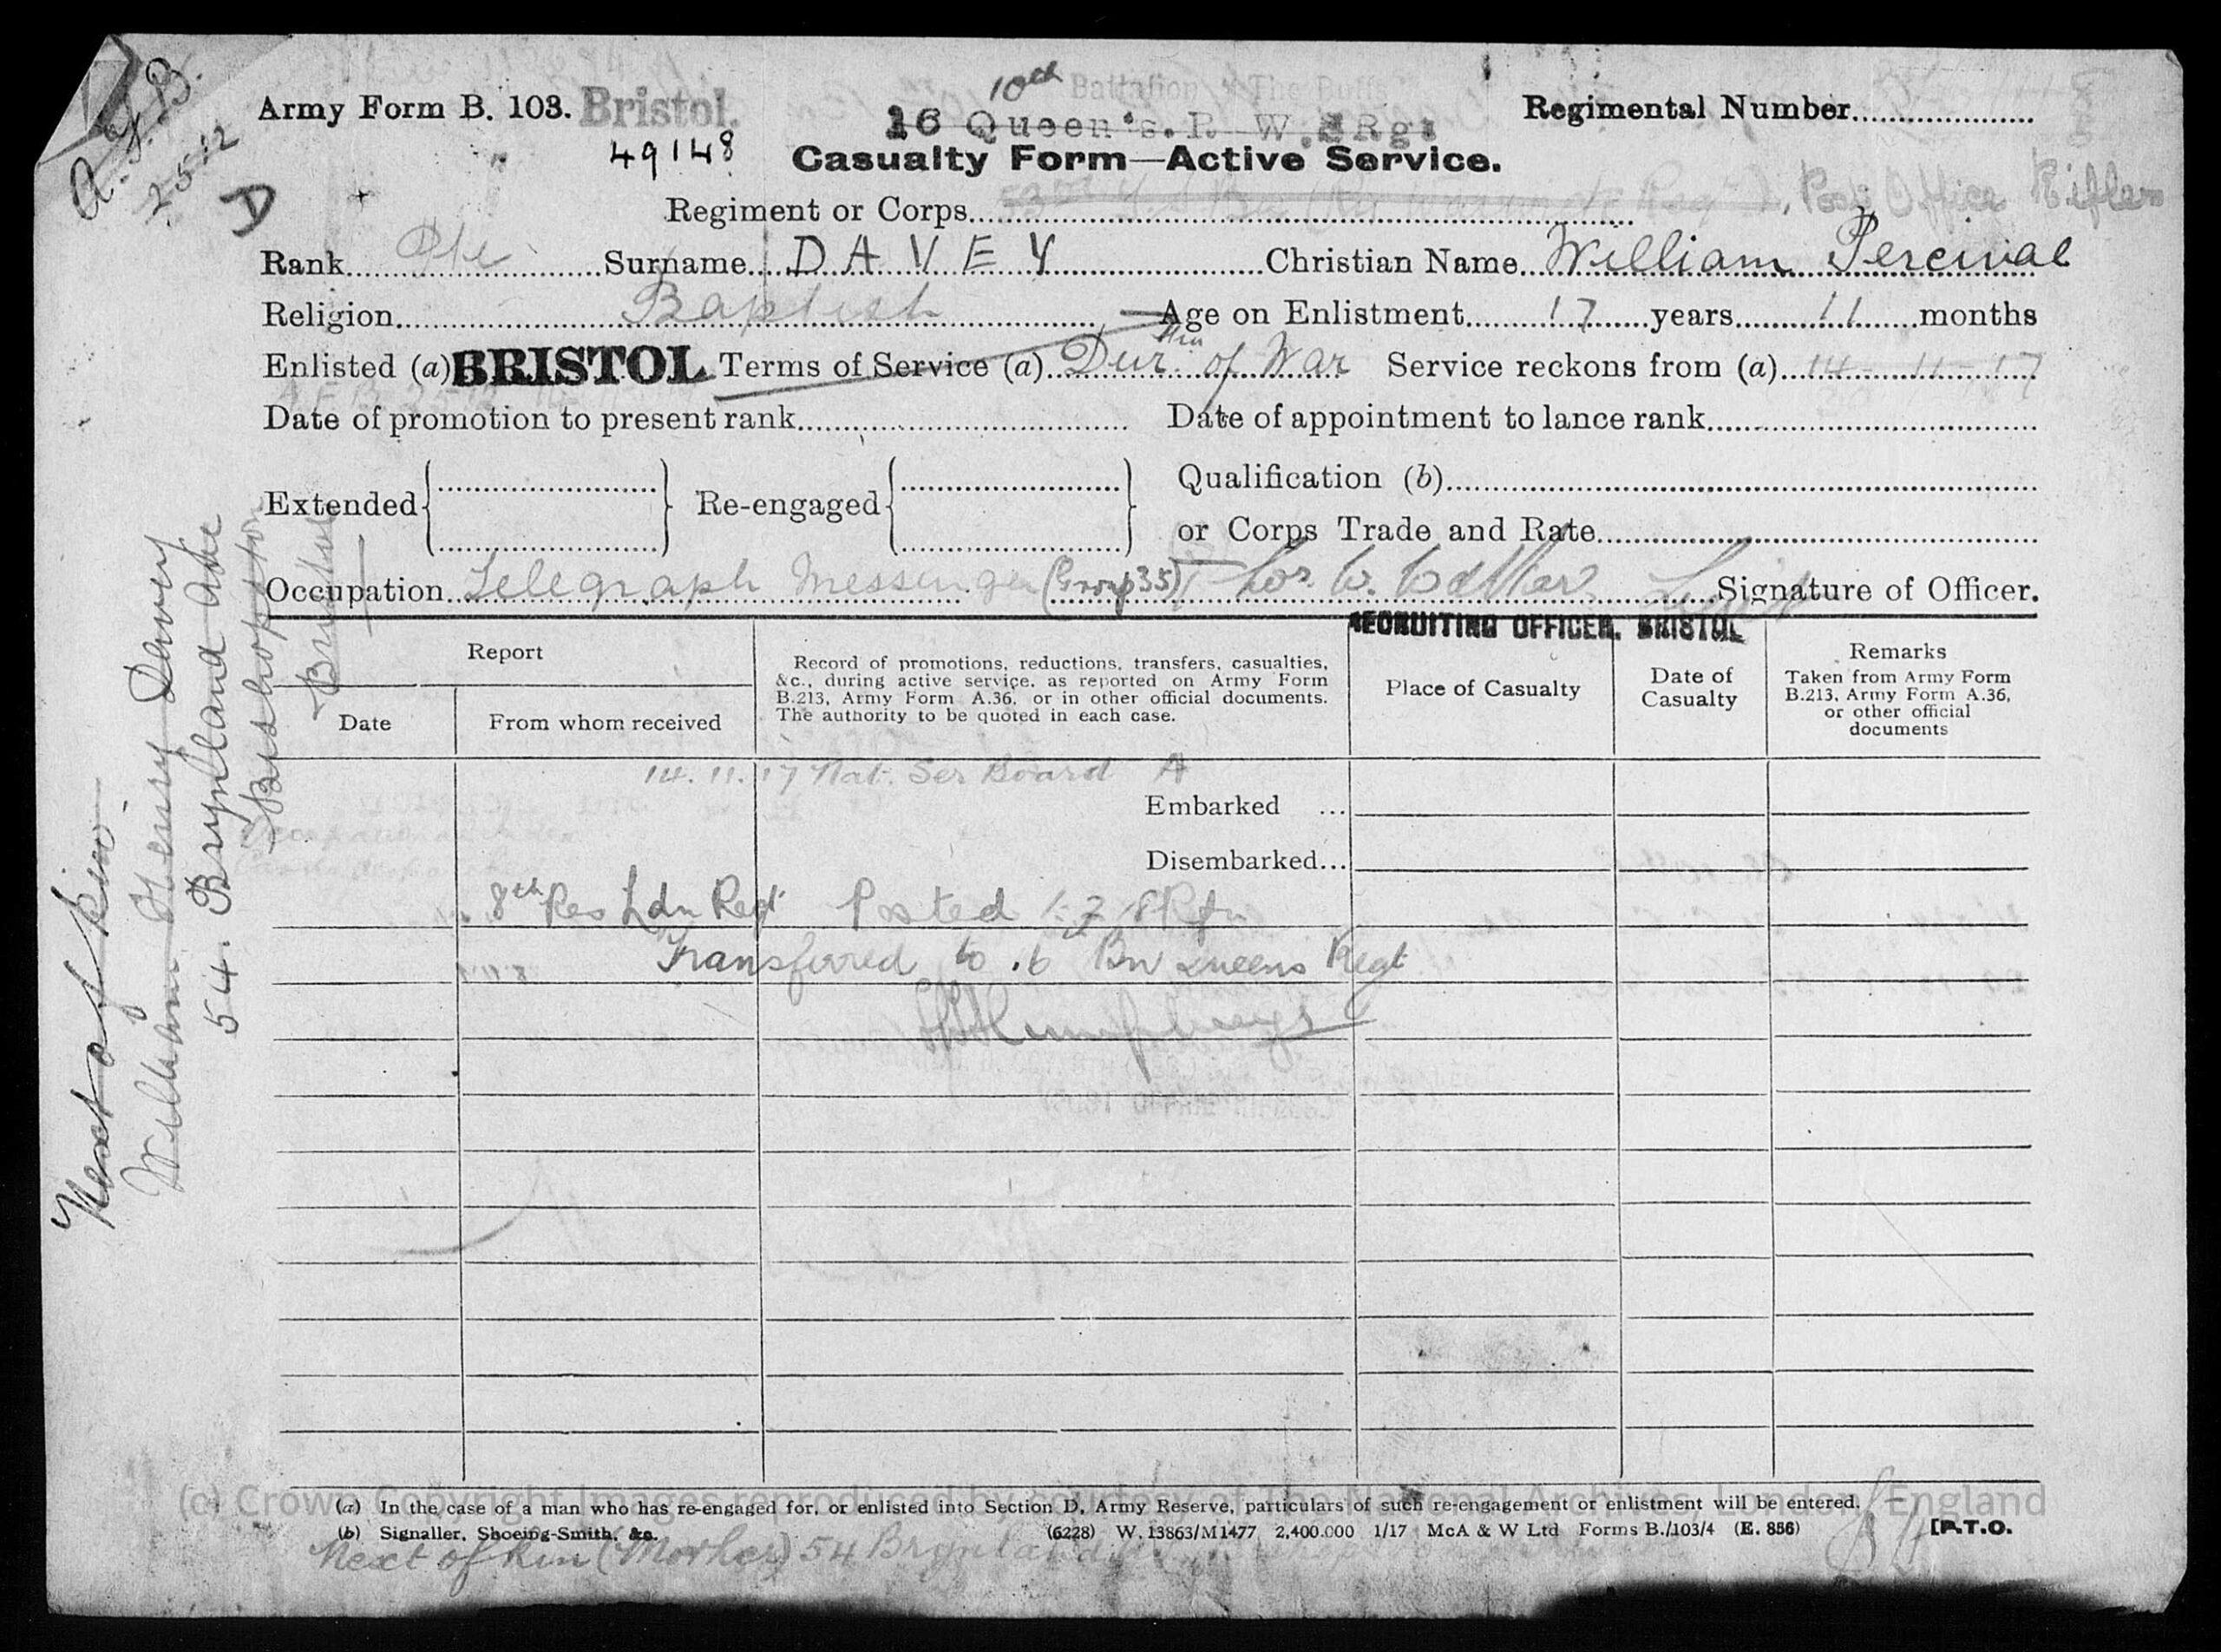 A.F.B.
2512
D
Army Form B. 103. Bristol.
10th Battalion The Buffs
16 Queen's. R. W. S Rgt
Regimental Number
49148 Casualty Form—Active Service.
Regiment or Corps Post Office Rifles
Rank Pte Surname DAVEY Christian Name William Percival
Religion Baptist Age on Enlistment 17 years 11 months
Enlisted (a) BRISTOL Terms of Service (a) Durtn of War Service reckons from (a) 14-11-17
Date of promotion to present rank Date of appointment to lance rank
Extended Re-engaged Qualification (b)
or Corps Trade and Rate
Occupation Telegraph Messenger (Group 35) Signature of Officer.
RECRUITING OFFICER. BRISTOL
Report
Date
From whom received
Record of promotions, reductions, transfers, casualties,
&c., during active service, as reported on Army Form
B.213, Army Form A.36, or in other official documents.
The authority to be quoted in each case.
Place of Casualty
Date of
Casualty
Remarks
Taken from Army Form
B.213, Army Form A.36,
or other official
documents
14.11.17 Nat. Ser Board A
Embarked ...
Disembarked...
8th Res Ldn Regt Posted 1.7.18 Rfn
Transferred to Bn Queens Regt
Humphreys
Next of kin
William Henry Davey
54. Brynland Ave
Bishopston
Bristol
(a) In the case of a man who has re-engaged for, or enlisted into Section D, Army Reserve, particulars of such re-engagement or enlistment will be entered.
(b) Signaller, Shoeing-Smith, &c.
(6228) W. 13863/M1477 2,400,000 1/17 McA & W Ltd Forms B./103/4 (E. 856)
[P.T.O.
Next of Kin (Mother) 54 Brynland
(c) Crown Copyright Images reproduced by courtesy of The National Archives, London, England